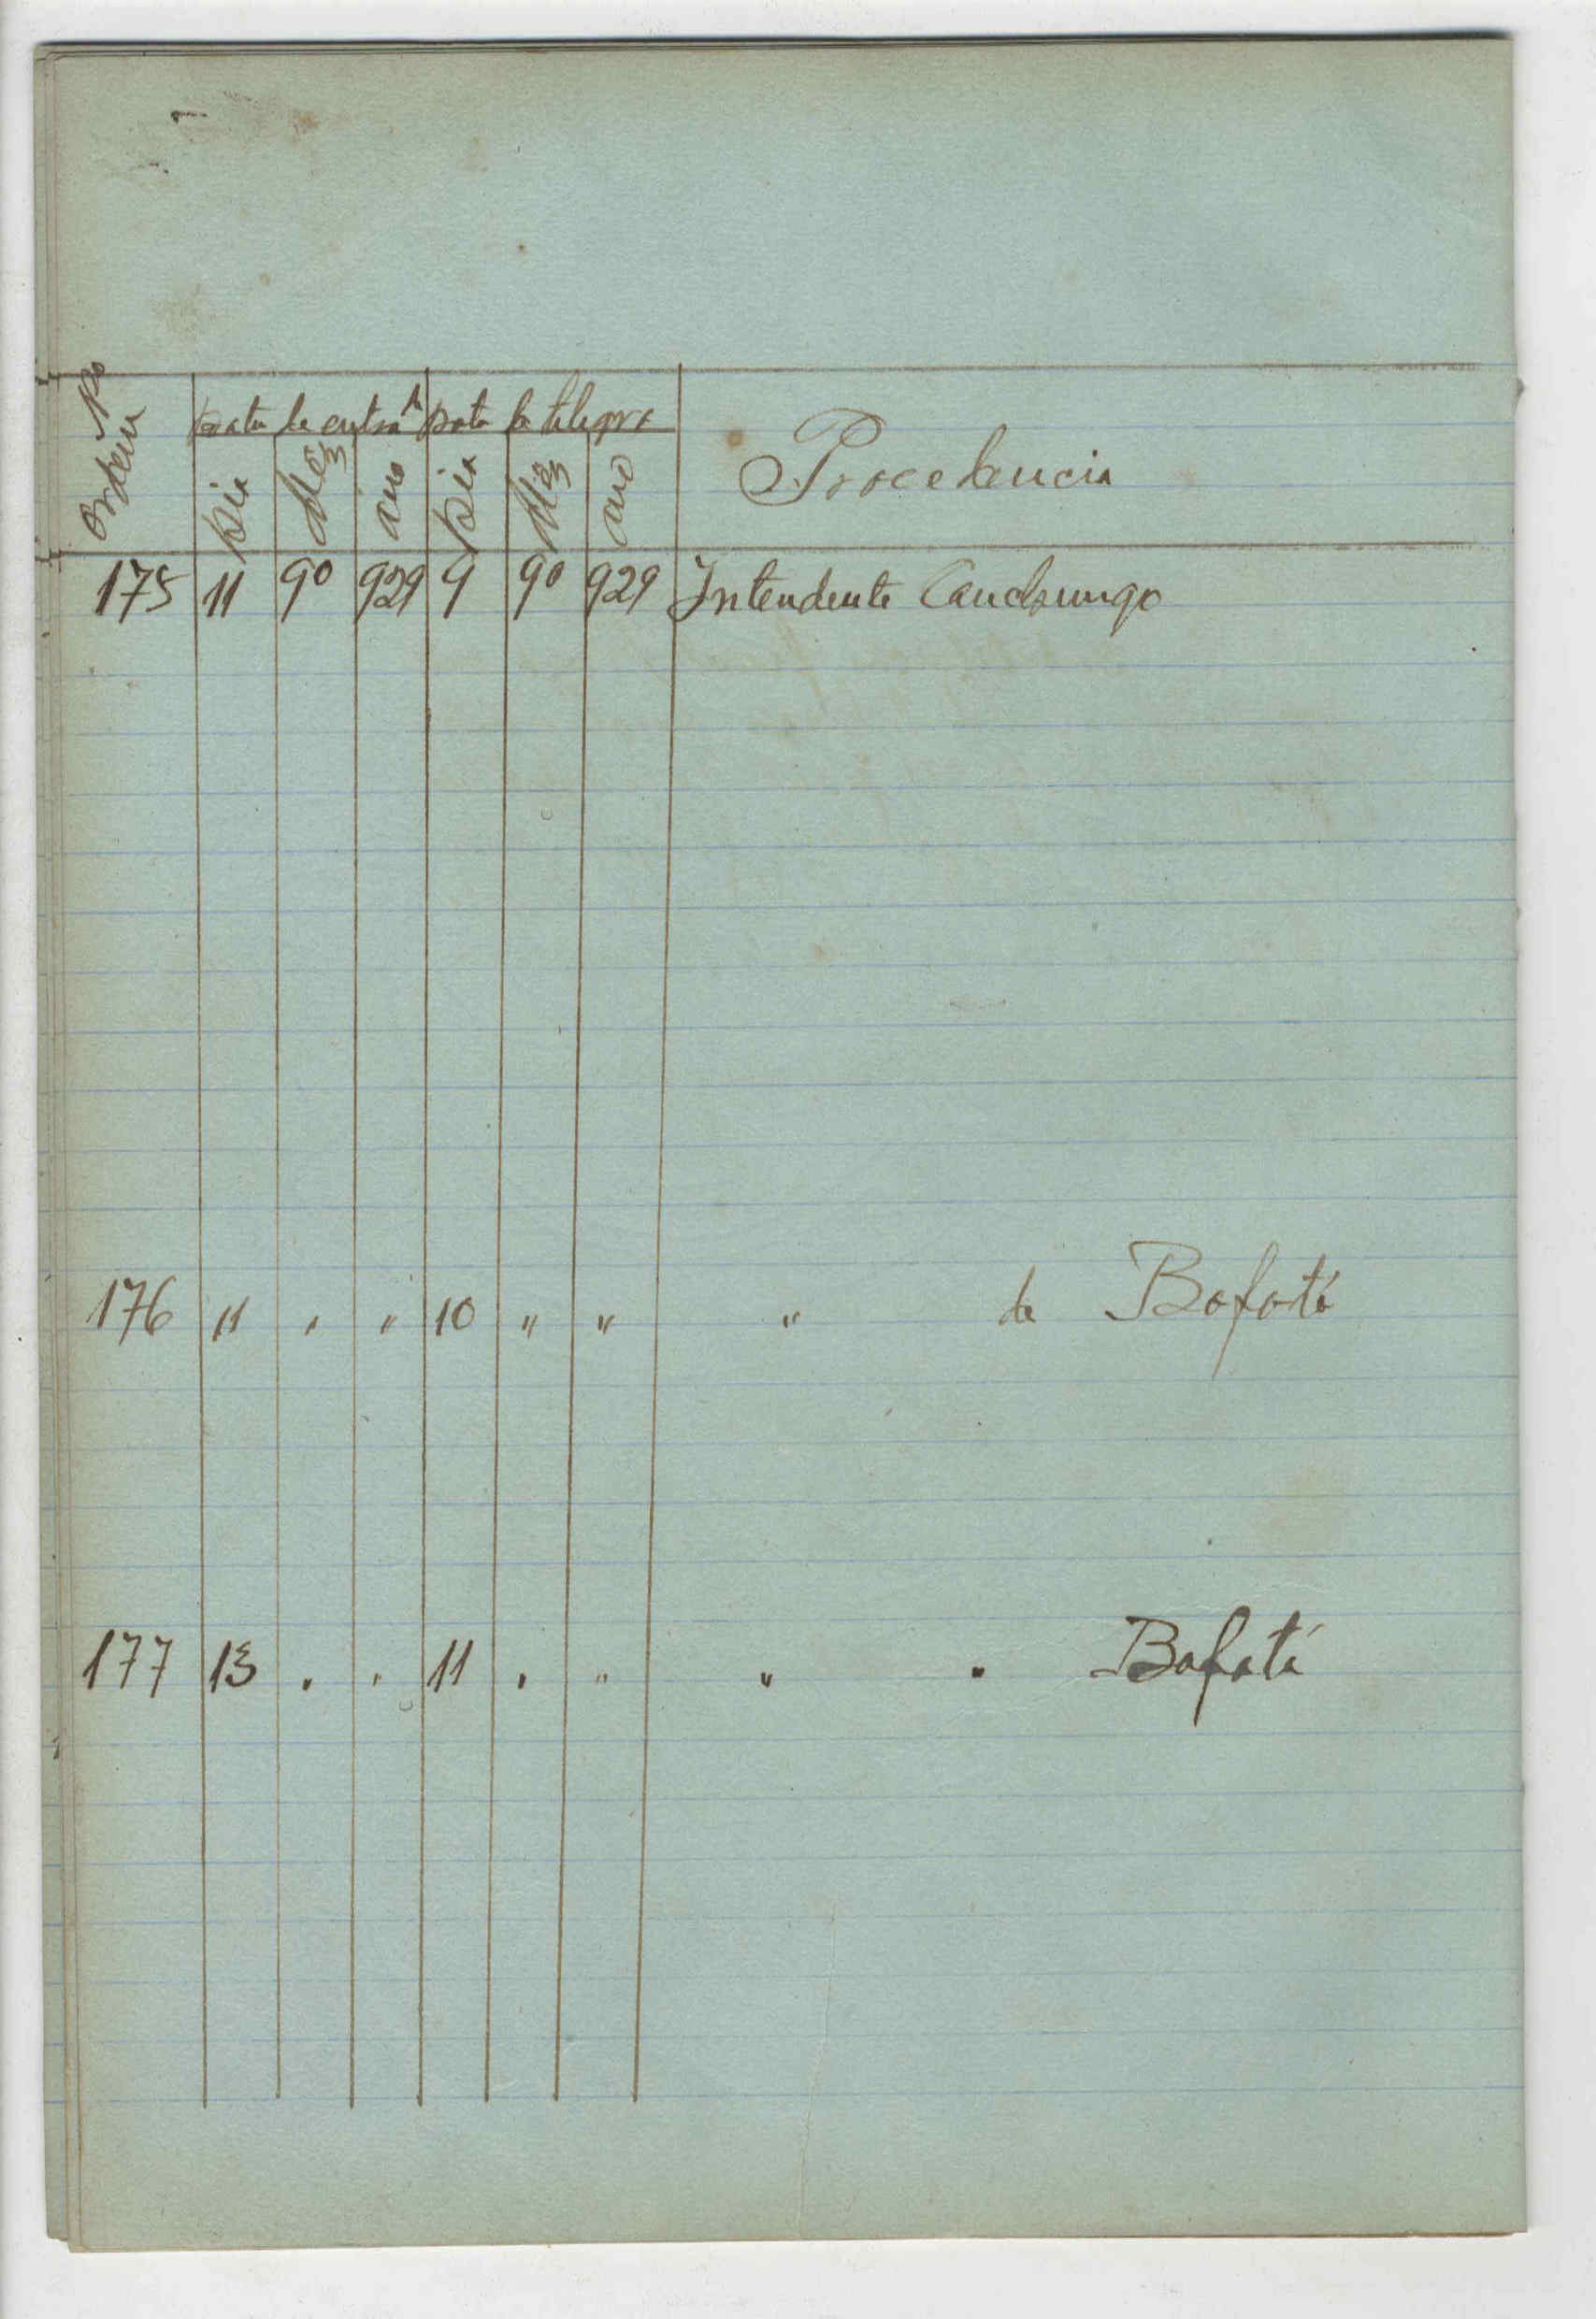 Nº Ordem
Data de entrada Data do telegra
Dia Mez ano Dia Mez ano Procedencia
175 11 9º 929 9 9º 929 Intendente Canchungo
176 11 " " 10 " " " de Bafatá
177 13 " " 11 " " " " Bafatá